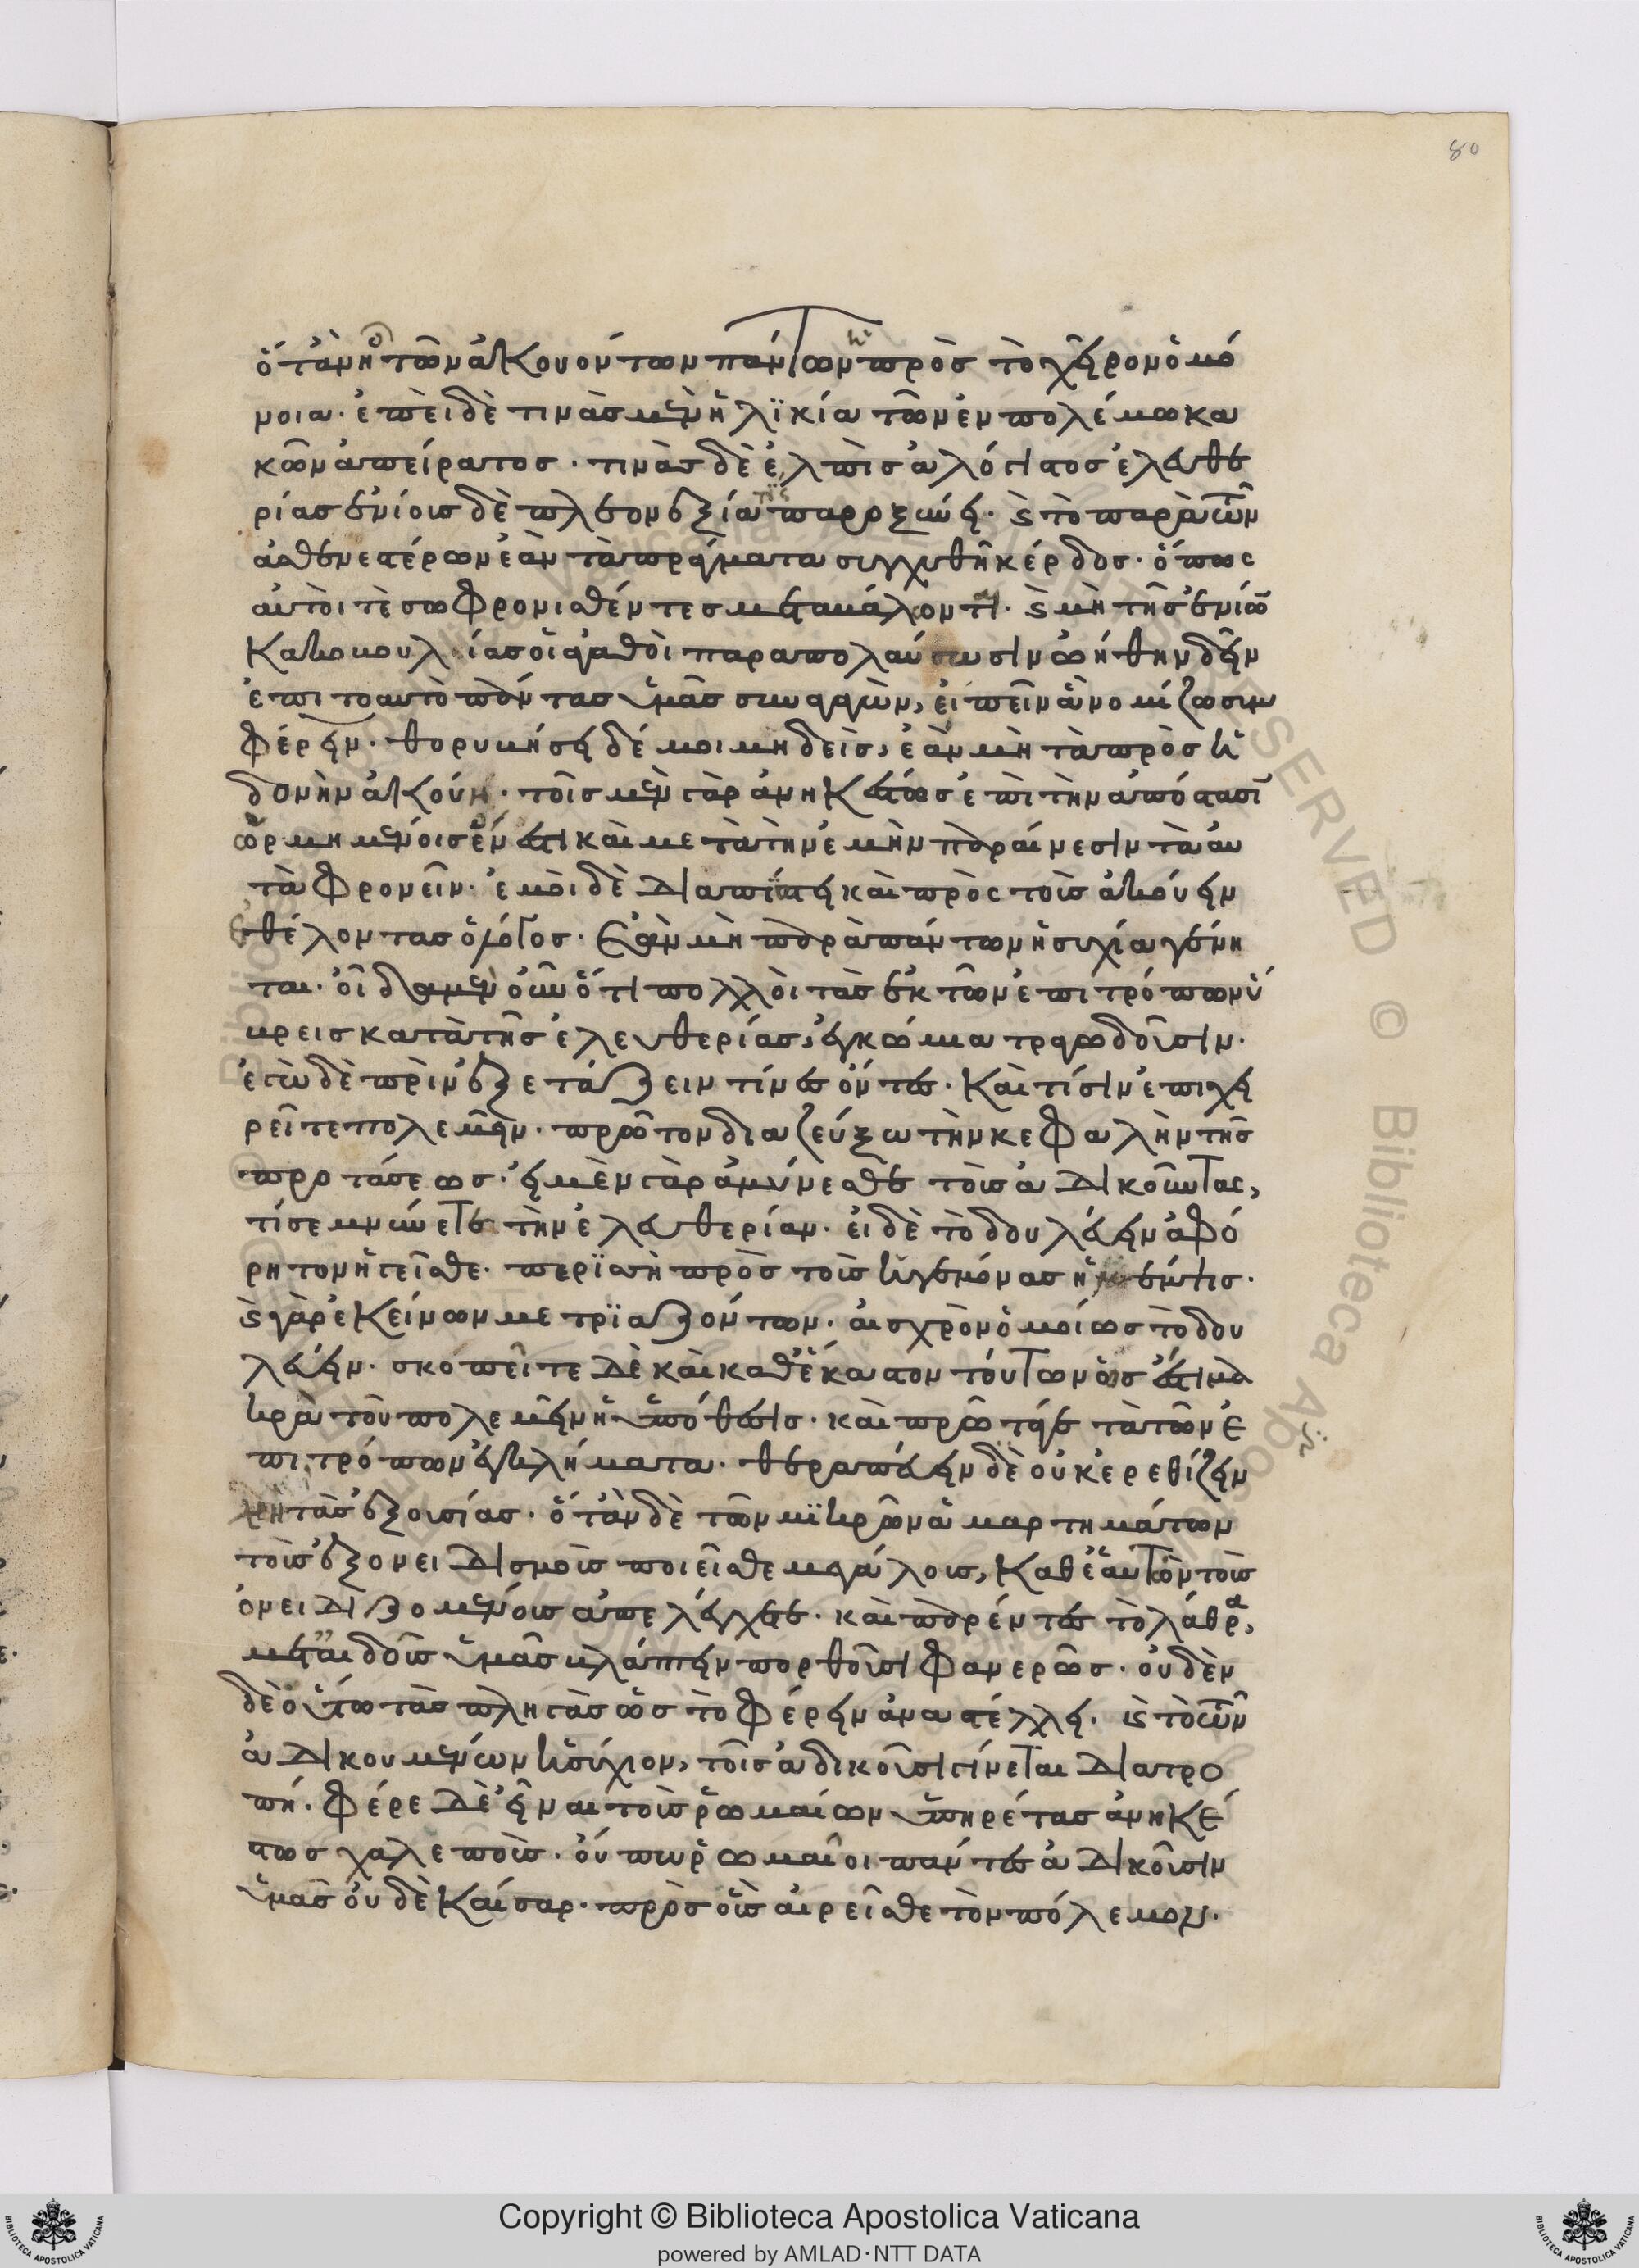 80
ὅταν ἢ τῶν ἀκουόντων πάντων πρὸς τὸ χεῖρον ὁμό
νοια. ἐπεὶ δὲ τινὰς μὲν ἡλικία τῶν ἐν πολέμω κα
κῶν ἀπείρατος. τινὰς δὲ ἐλπὶς ἀλόγιστος ἐλευθε
ρίας ἐνίοις δὲ πλεονεξία τίς παροξύνει. καὶ τὸ παρὰ τῶν
ἀσθενεστέρων ἐὰν τὰ πράγματα συγχυθῆ κέρδος. ὅπως
αὐτοί τε σωφρονισθέντες μεταβάλονται. καὶ μὴ τῆς ἐνίων
κακοβουλίας οἱ ἀγαθοὶ παραπολαύσωσιν ὠήθην δεῖν
ἐπι τοαυτὸ πάντας ὑμᾶς συναγαγὼν, εἰπεῖν ἃ νομίζω συμ
φέρειν. θορυβήσει δέ μοι μηδεὶς, ἐὰν μὴ τὰ πρὸς ἡ
δονὴν ἀκούη. τοῖς μὲν γὰρ ἀνηκέστως ἐπὶ τὴν ἀπόστασιν
ὡρμημένοις ἔνεστι καὶ μετὰ τὴν ἐμὴν παραίνεσιν τὰ αυ
τὰ φρονεῖν. ἐμοὶ δὲ διαπίπτει καὶ πρὸς τοὺς ἀκούειν
ἐθέλοντας ὁ λόγος. ἐὰν μὴ παρὰ πάντων ἡσυχία γένη
ται. οἶδα μὲν οὖν ὅτι πολλοὶ τὰς ἐκ τῶν ἐπιτρόπων ὕ
βρεις κατὰ τῆς ἐλευθερίας, ἐγκώμια τραγωδοῦσιν.
ἐγὼ δὲ πρὶν ἐξετάζειν τίνες ὄντες. καὶ τίσιν ἐπιχει
ρεῖτε πολεμεῖν. πρῶτον διαζεύξω τὴν κεφαλὴν τῆς
προτάσεως. εἰ μὲν γὰρ ἀμύνεσθε τοὺς ἀδικοῦντας,
τί σεμνύνετε τὴν ἐλευθερίαν. εἰ δὲ τὸ δουλεύειν ἀφό
ρητον ἡγεῖσθε. περισσὴ πρὸς τοὺς ἡγεμόνας ἡ μέμψις.
καὶ γὰρ ἐκείνων μετριαζόντων. αἰσχρὸν ὁμοίως τὸ δου
λεύειν. σκοπεῖτε δὲ καὶ καθ' ἕκαστον τούτων ὡς ἔστι μι
κρὰ τοῦ πολεμεῖν ἡ ὑπόθεσις. καὶ πρῶτά γε τὰ τῶν ἐ
πιτρόπων ἐγκλήματα. θεραπεύειν δὲ οὐκ ἐρεθίζειν
χρὴ τὰς ἐξουσίας. ὅταν δὲ τῶν μικρῶν ἁμαρτημάτων
τοὺς ἐξονειδισμοὺς ποιεῖσθε μεγάλους, καθ' ἑαυτῶν τοὺς
ὀνειδιζομένους ἀπελέγχετε. καὶ παρέντες τὸ λάθρα,
μετ' αἰδοῦς ὑμᾶς βλάπτειν πορθοῦσι φανερῶς. οὐδὲν
δὲ οὕτω τὰς πληγὰς ὡς τὸ φέρειν ἀναστέλλει. καὶ τὸ τῶν
ἀδικουμένων ἡσύχιον, τοῖς ἀδικοῦσι γίνεται διατρο
πή. φέρε δὲ εἶναι τοὺς ῥωμαίων ὑπηρέτας ἀνηκέ
στως χαλεπούς. οὔπω ῥωμαῖοι πάντες ἀδικοῦσιν
ὑμᾶς οὐδὲ καῖσαρ. πρὸς οὓς αἱρεῖσθε τὸν πόλεμον.
Copyright © Biblioteca Apostolica Vaticana
powered by AMLAD·NTT DATA